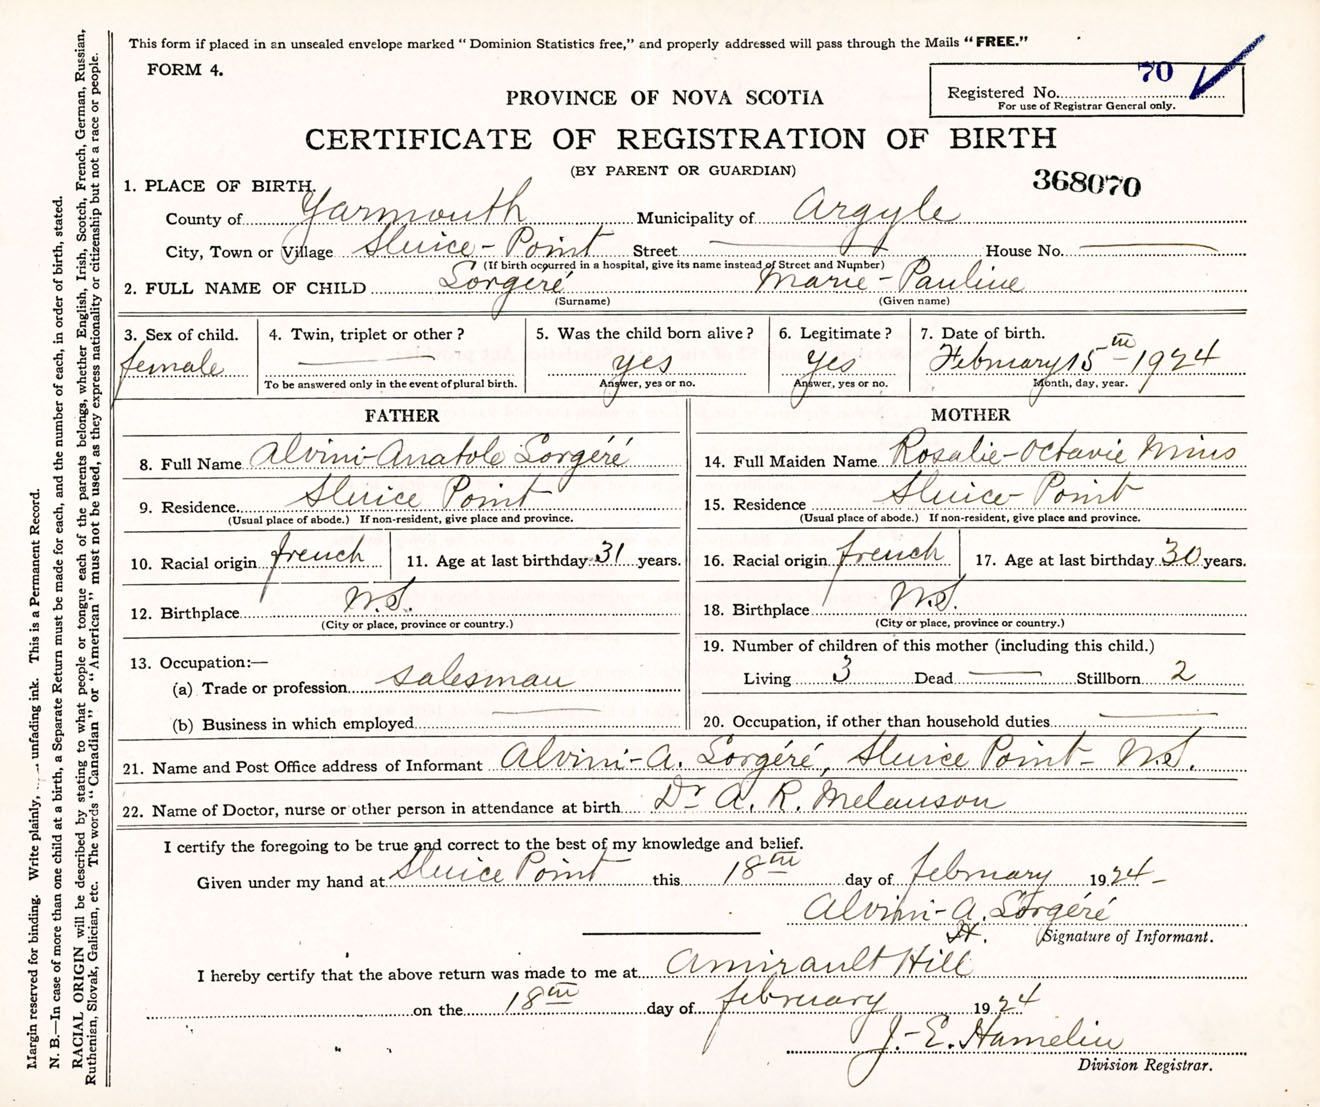 This form if placed in an unsealed envelope marked "Dominion Statistics free," and properly addressed will pass through the Mails "FREE."
FORM 4.
70
Registered No.
For use of Registrar General only.
PROVINCE OF NOVA SCOTIA
CERTIFICATE OF REGISTRATION OF BIRTH
(BY PARENT OR GUARDIAN)
368070
1. PLACE OF BIRTH.
County of Yarmouth Municipality of Argyle
City, Town or Village Sluice-Point Street House No.
(If birth occurred in a hospital, give its name instead of Street and Number)
2. FULL NAME OF CHILD Sorgéré Marie-Pauline
(Surname) (Given name)
3. Sex of child. 4. Twin, triplet or other? 5. Was the child born alive? 6. Legitimate? 7. Date of birth.
female yes yes February 15th 1924
To be answered only in the event of plural birth. Answer, yes or no. Answer, yes or no. Month, day, year.
FATHER MOTHER
8. Full Name Alvini-Anatole Sorgéré 14. Full Maiden Name Rosalie-Octavie Mius
9. Residence Sluice Point 15. Residence Sluice-Point
(Usual place of abode.) If non-resident, give place and province. (Usual place of abode.) If non-resident, give place and province.
10. Racial origin french 11. Age at last birthday 31 years. 16. Racial origin french 17. Age at last birthday 30 years.
12. Birthplace N.S. 18. Birthplace N.S.
(City or place, province or country.) (City or place, province or country.)
13. Occupation:— 19. Number of children of this mother (including this child.)
(a) Trade or profession salesman Living 3 Dead Stillborn 2
(b) Business in which employed 20. Occupation, if other than household duties
21. Name and Post Office address of Informant Alvini-A. Sorgéré, Sluice Point- N.S.
22. Name of Doctor, nurse or other person in attendance at birth Dr A. R. Melanson
I certify the foregoing to be true and correct to the best of my knowledge and belief.
Given under my hand at Sluice Point this 18th day of february 1924-
Alvini-A. Sorgéré
H. Signature of Informant.
I hereby certify that the above return was made to me at Amirault Hill
on the 18th day of february 1924
J.-E. Hamelin
Division Registrar.
Margin reserved for binding. Write plainly, unfading ink. This is a Permanent Record.
N. B.—In case of more than one child at a birth, a Separate Return must be made for each, and the number of each, in order of birth, stated.
RACIAL ORIGIN will be described by stating to what people or tongue each of the parents belongs, whether English, Irish, Scotch, French, German, Russian,
Ruthenian, Slovak, Galician, etc. The words "Canadian" or "American" must not be used, as they express nationality or citizenship but not a race or people.